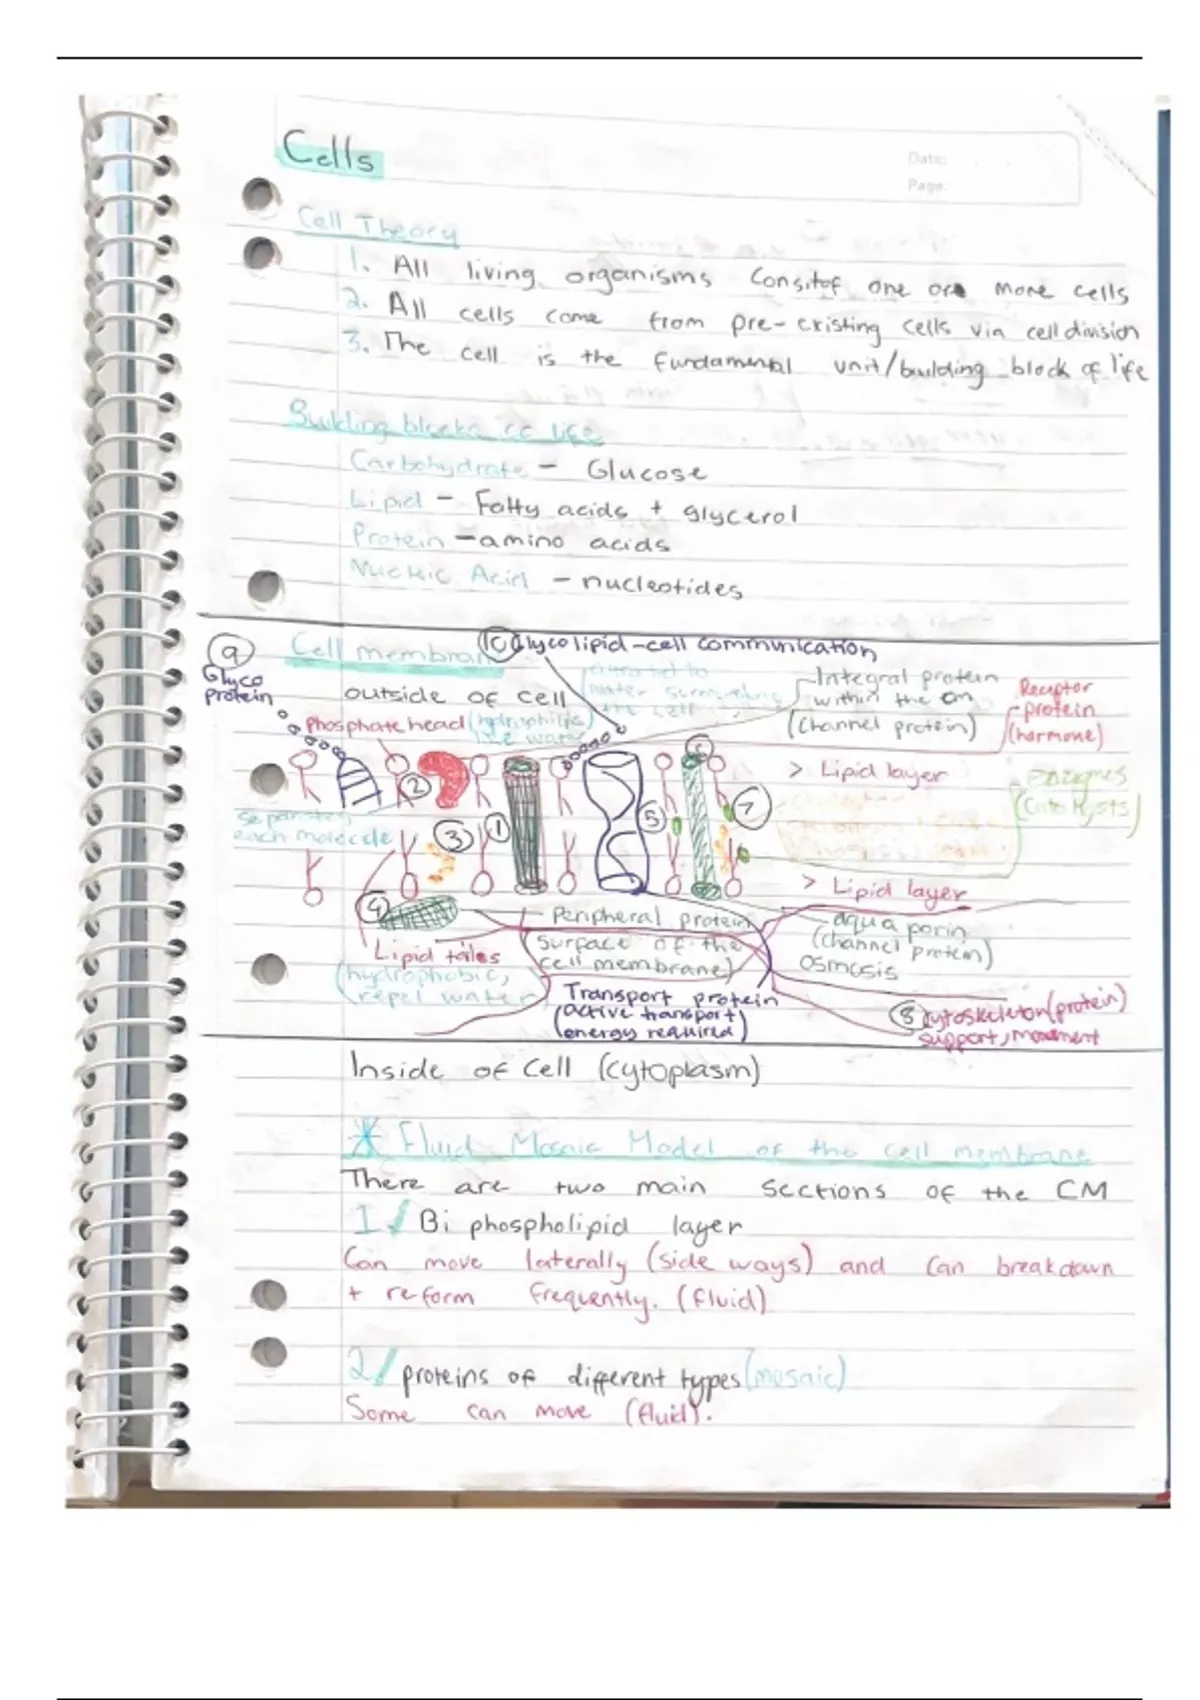 Cells
Date:
Page:
Cell Theory
1. All living organisms Consitof one ore more cells
2. All cells come from pre-existing cells via cell division
3. The cell is the fundamental unit/building block of life
Building blocks of life
Carbohydrate - Glucose
Lipid - Fatty acids + glycerol
Protein - amino acids
Nucleic Acid - nucleotides
9
Glyco
protein
Cell membran
10 Glycolipid-cell communication
outside of cell
attracted to
water surrounding
the cell
Integral protein
within the cm
(channel protein)
Receptor
protein
(hormone)
Phosphate head (hydrophilic)
like water
> Lipid layer
Enzymes
(Catalysts)
2
6
7
5
3
1
separates
each molecule
4
> Lipid layer
Lipid tailes
(hydrophobic,
repel water)
Peripheral protein
(surface of the
cell membrane)
aqua porin
(channel protein)
osmosis
Transport protein
(active transport)
(energy required)
8 cytoskeleton (protein)
support, movement
Inside of cell (cytoplasm)
Fluid Mosaic Model of the cell membrane
There are two main sections of the CM
1/ Bi phospholipid layer
Can move laterally (side ways) and can breakdown
+ reform frequently. (fluid)
2/ proteins of different types (mosaic)
Some can move (fluid).